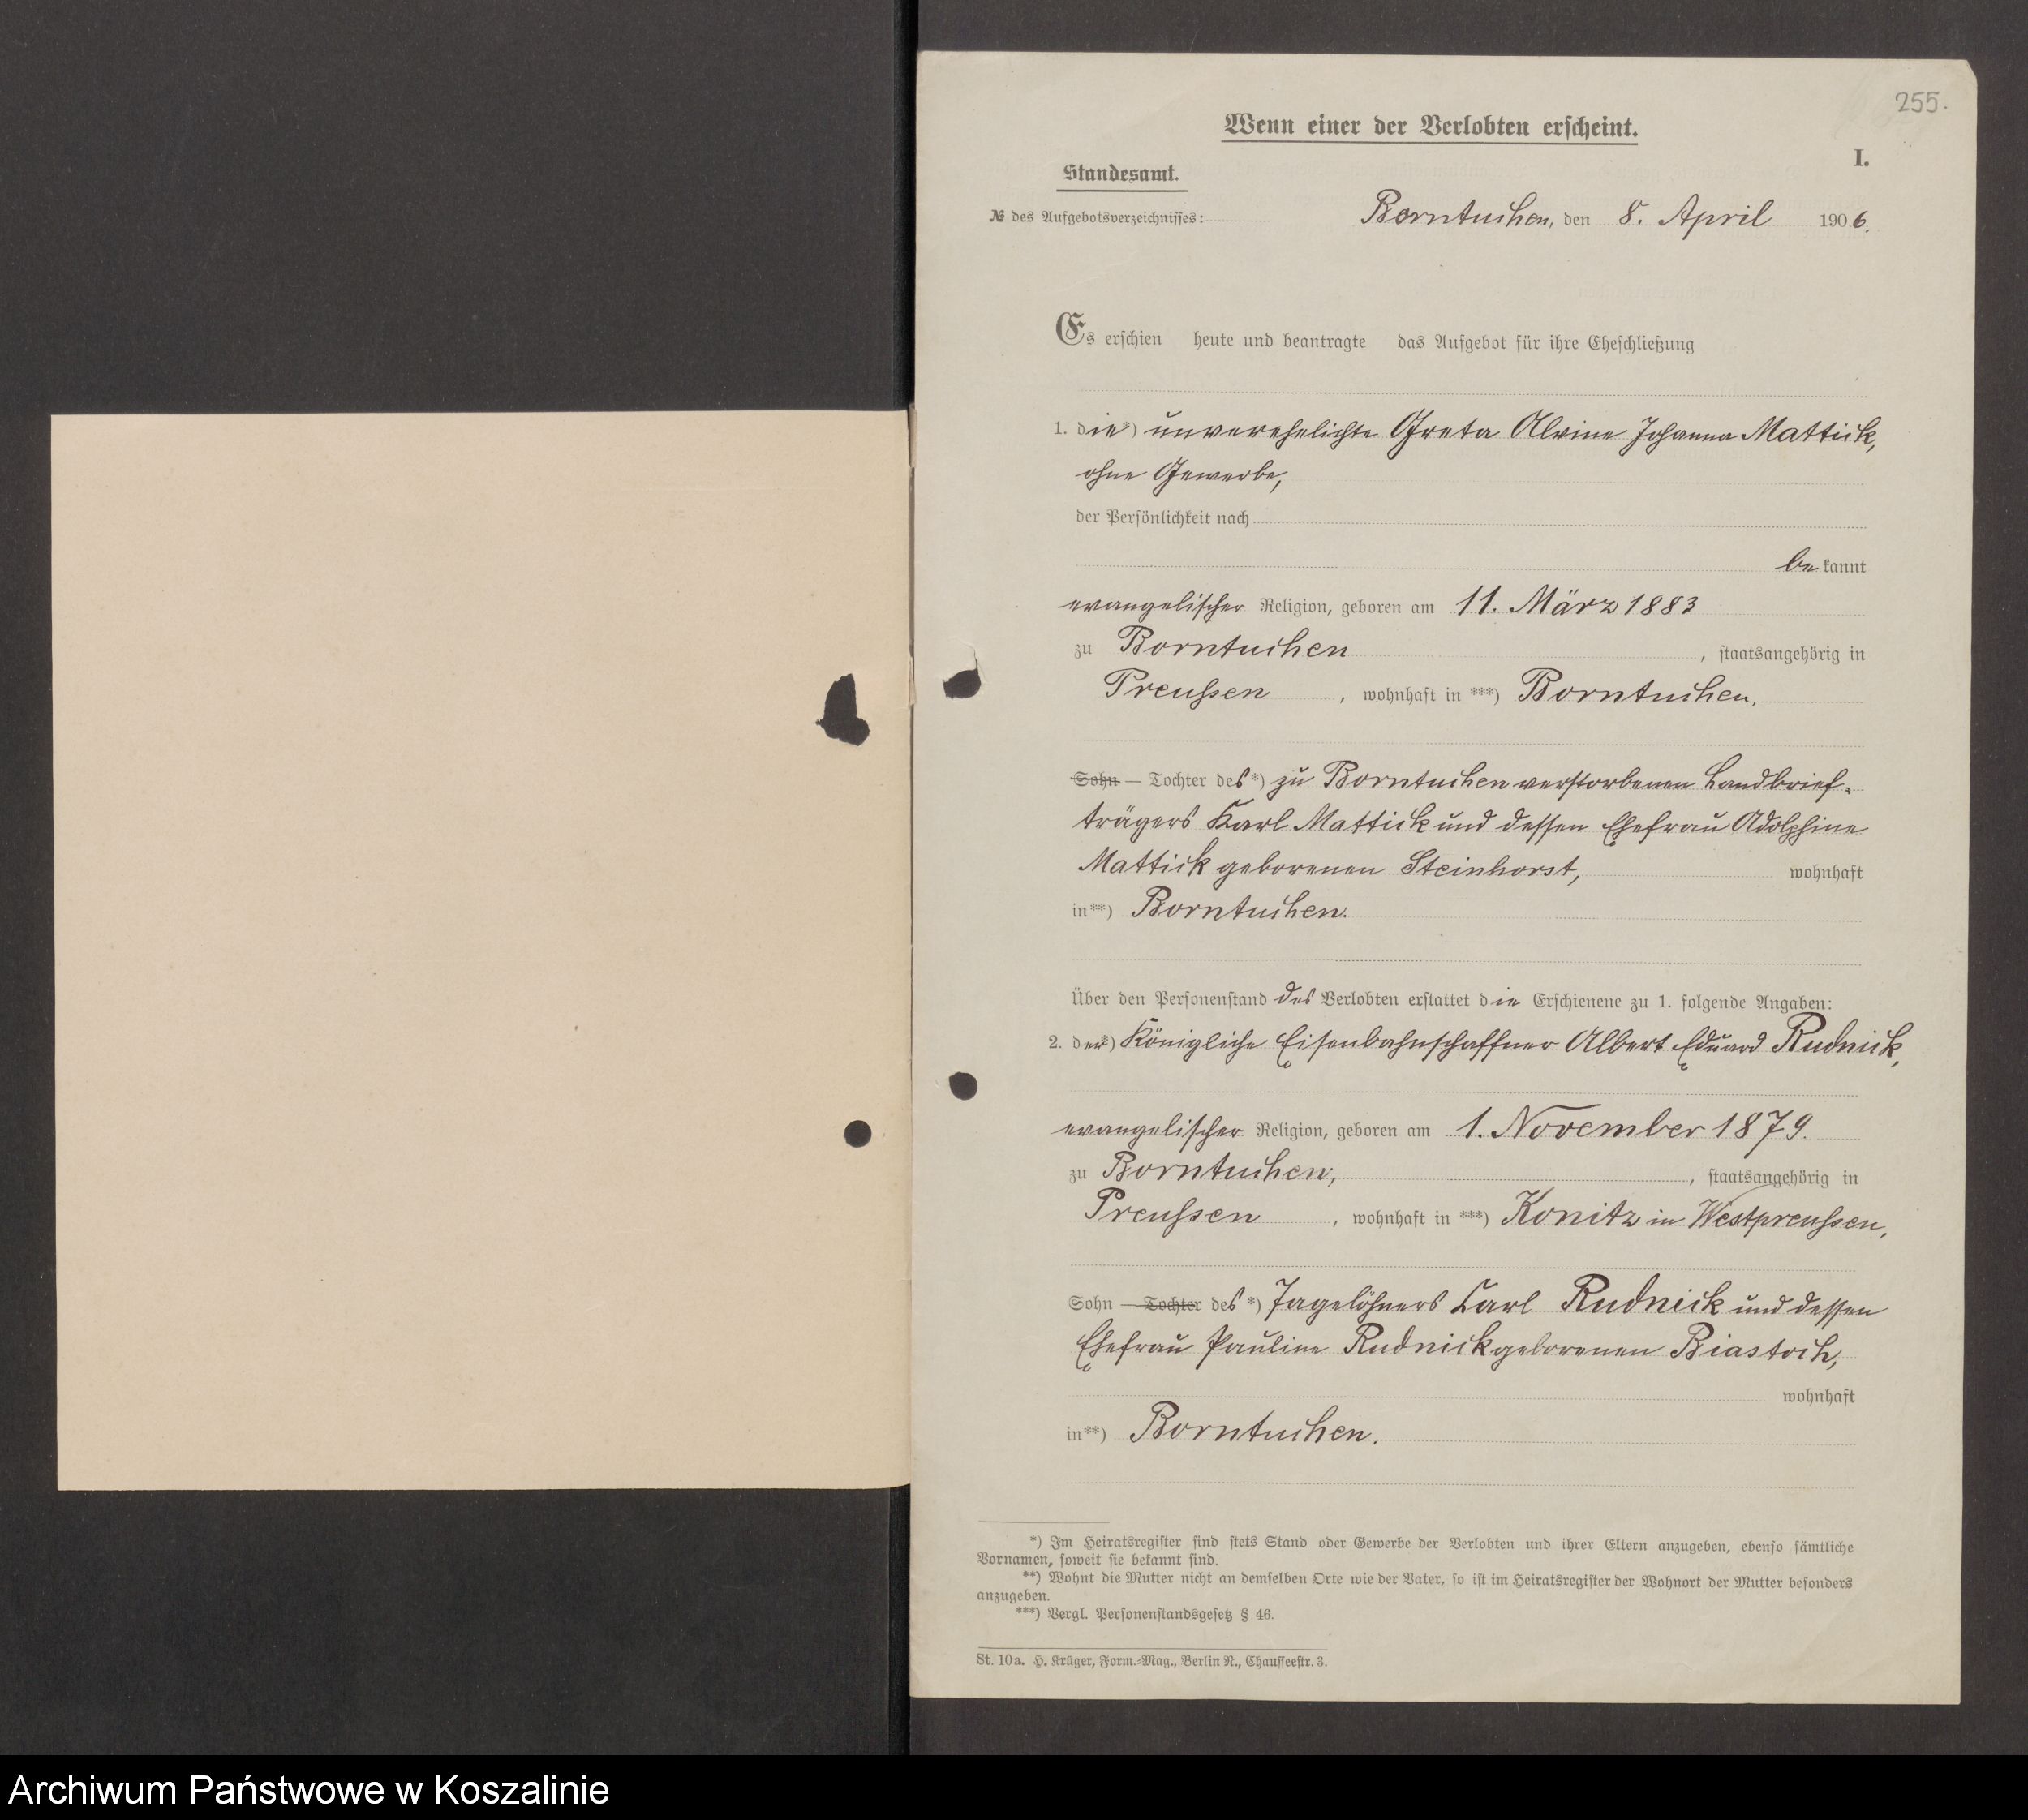 255.
Wenn einer der Verlobten erscheint.
I.
Standesamt.
№ des Aufgebotsverzeichnisses:
Borntuchen, den 8. April 1906.
Es erschien heute und beantragte das Aufgebot für ihre Eheschließung
1. die*) unverehelichte Greta Alvine Johanna Mattick,
ohne Gewerbe,
der Persönlichkeit nach
be kannt
evangelischer Religion, geboren am 11. März 1883
zu Borntuchen, staatsangehörig in
Preussen, wohnhaft in ***) Borntuchen.
Sohn — Tochter des*) zu Borntuchen verstorbenen Landbrief-
trägers Karl Mattick und dessen Ehefrau Adolphine
Mattick geborenen Steinhorst, wohnhaft
in**) Borntuchen.
Über den Personenstand des Verlobten erstattet die Erschienene zu 1. folgende Angaben:
2. der*) Königliche Eisenbahnschaffner Albert Eduard Rudnick,
evangelischer Religion, geboren am 1. November 1879.
zu Borntuchen, , staatsangehörig in
Preussen, wohnhaft in ***) Konitz in Westpreussen,
Sohn — Tochter des *) Tagelöhners Carl Rudnick und dessen
Ehefrau Pauline Rudnick geborenen Biastoch,
wohnhaft
in**) Borntuchen.
*) Im Heiratsregister sind stets Stand oder Gewerbe der Verlobten und ihrer Eltern anzugeben, ebenso sämtliche
Vornamen, soweit sie bekannt sind.
**) Wohnt die Mutter nicht an demselben Orte wie der Vater, so ist im Heiratsregister der Wohnort der Mutter besonders
anzugeben.
***) Vergl. Personenstandsgesetz § 46.
St. 10a. H. Krüger, Form.-Mag., Berlin N., Chausseestr. 3.
Archiwum Państwowe w Koszalinie